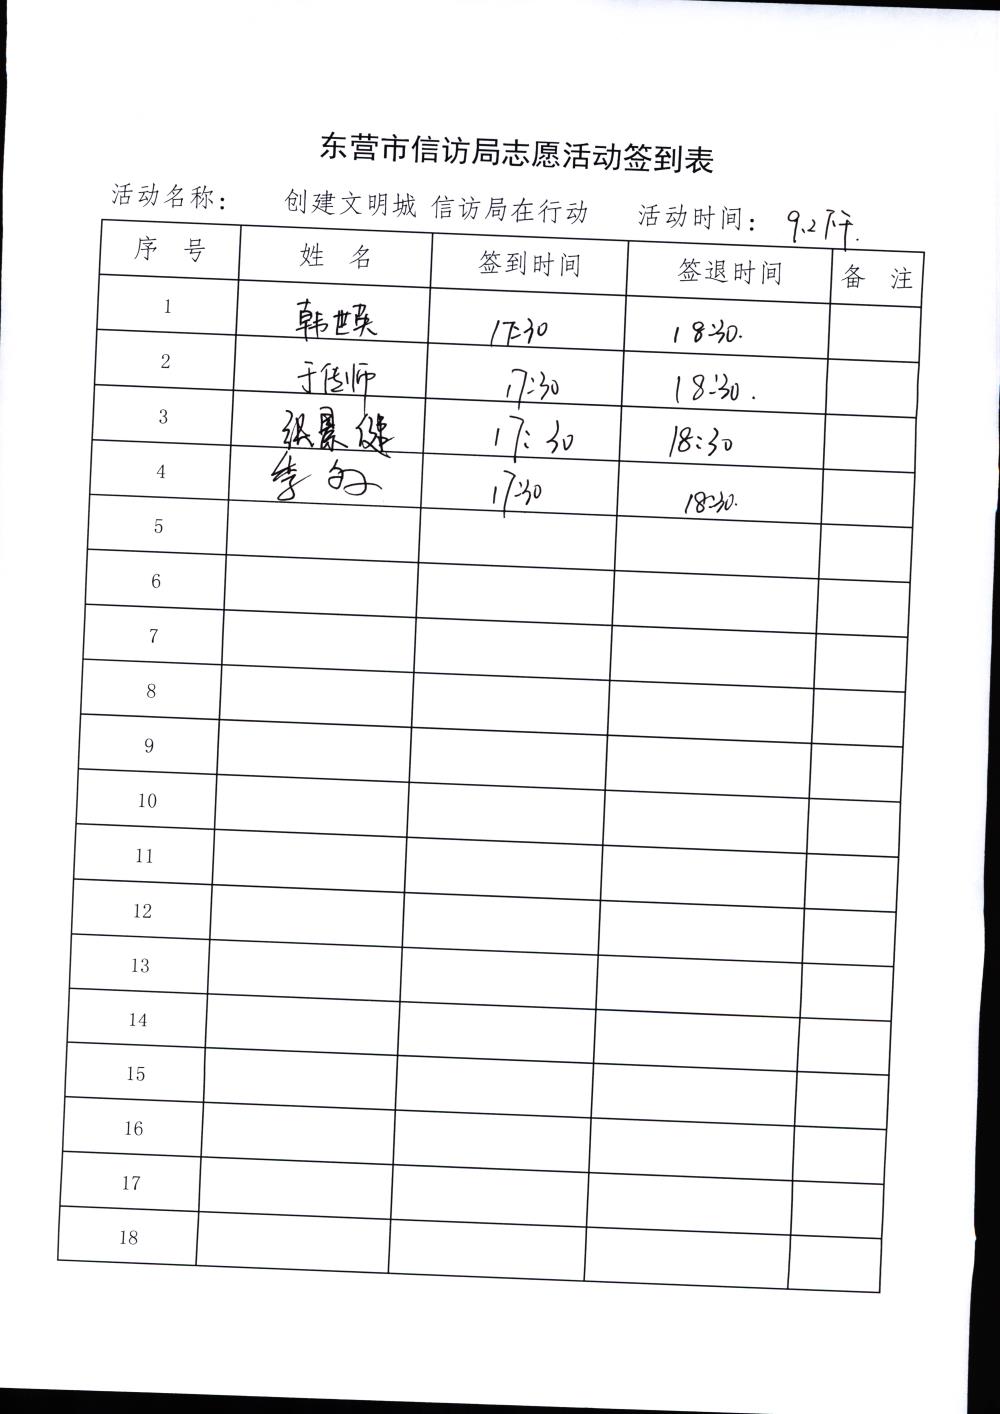 东营市信访局志愿活动签到表
活动名称： 创建文明城 信访局在行动 活动时间： 9.2下午.
序 号 姓 名 签到时间 签退时间 备 注
1 韩世英 17:30 18:30.
2 于传师 17:30 18:30.
3 张景健 17:30 18:30
4 李 17:30 18:30.
5
6
7
8
9
10
11
12
13
14
15
16
17
18